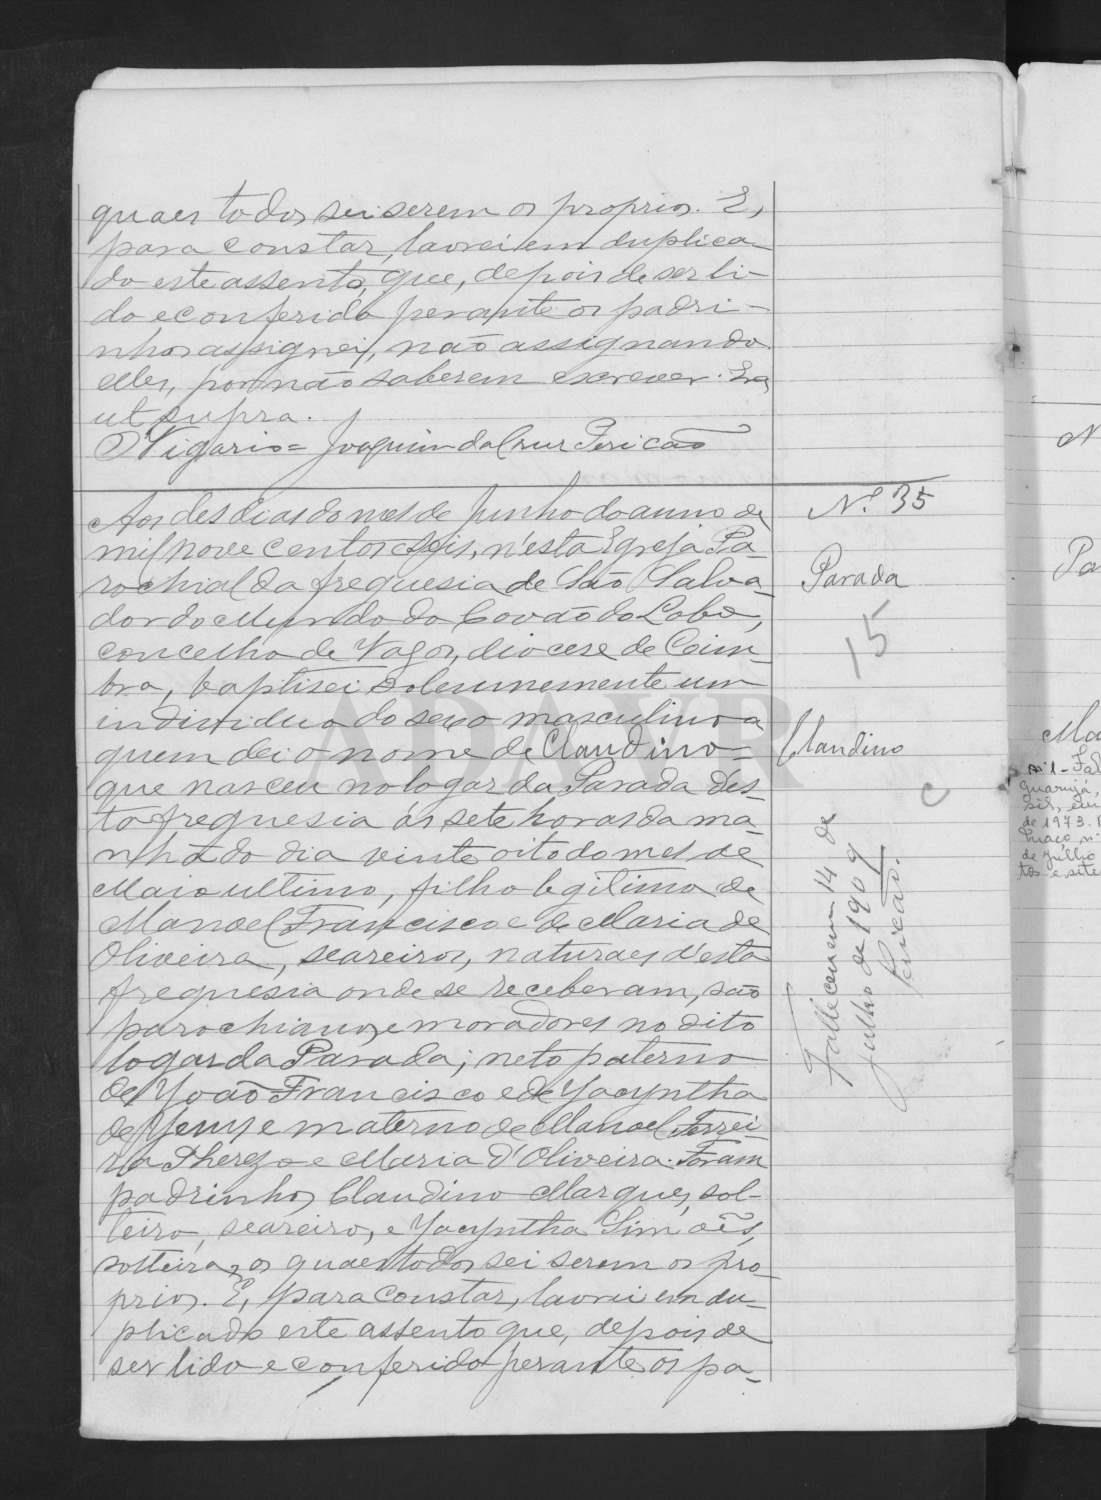 quaes todos sei serem os proprios. E,
para constar, lavrei em duplica-
do este assento, que, depois de ser li-
do e conferido perante os padri-
nhos assignei, não assignando
elles, por não saberem escrever. Era
ut supra.
O Vigario = Joaquim da Cruz Pericão
Aos des dias do mes de Junho do anno de
mil nove centos e seis, n'esta Egreja Pa-
rochial da freguesia de São Salva-
dor do Mundo do Covão do Lobo,
concelho de Vagos, diocese de Coim-
bra, baptisei solemnemente um
individuo do sexo masculino a
quem dei o nome de Claudino =
que nasceu no logar da Parada d'es-
ta freguesia ás sete horas da ma-
nhã do dia vinte oito do mes de
Maio ultimo, filho legitimo de
Manoel Francisco e de Maria de
Oliveira, seareiros, naturaes d'esta
freguesia onde se receberam, são
parochianos e moradores no dito
logar da Parada; neto paterno
de João Francisco e de Jacyntha
de Jesus e materno de Manoel Ferrei-
ra e Maria d'Oliveira. Foram
padrinhos, Claudino Marques, sol-
teiro, seareiro, e Jacyntha Simões,
solteira, os quaes todos sei serem os pro-
prios. E, para constar, lavrei em du-
plicado este assento que, depois de
ser lido e conferido perante os pa-
Nº 35
Parada
15
Claudino
C
Falleceu em 14 de
julho de 1909
Pericão.
ADAVR
N
Pa
Ma
nº 1 - Fal
Guarujá,
de 1973.
de julho
tos e sete